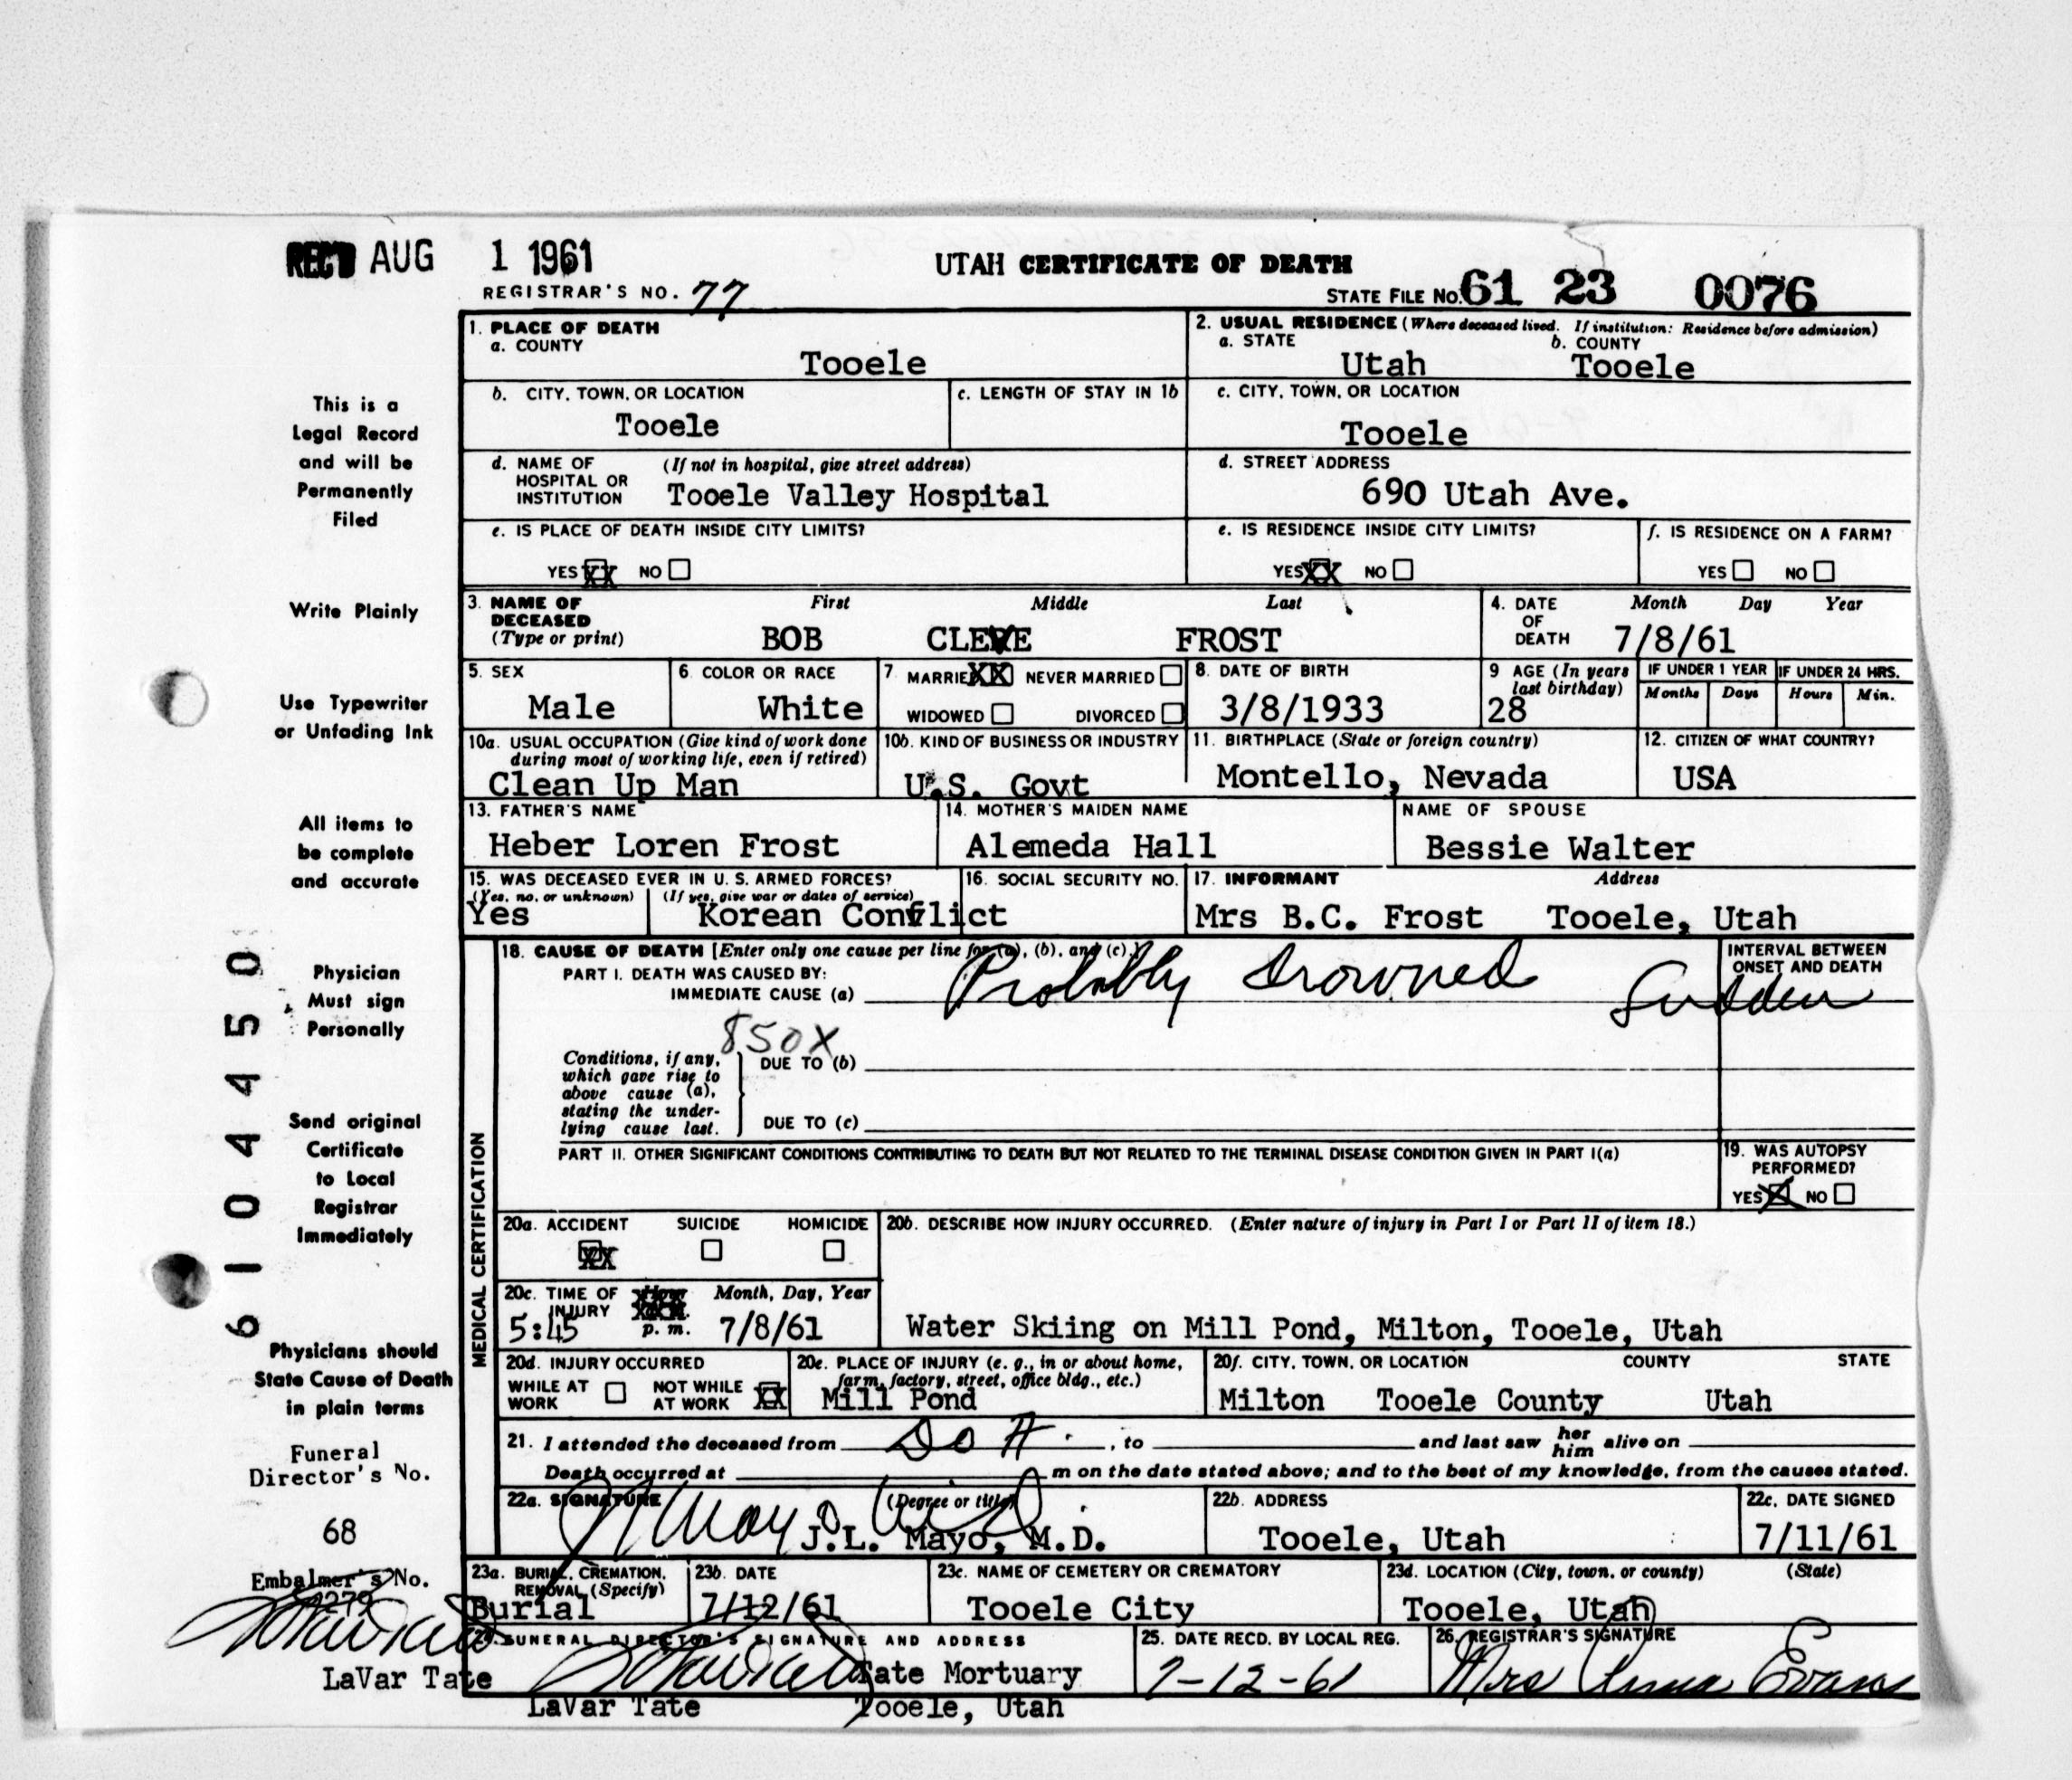 REC'D AUG 1 1961
UTAH CERTIFICATE OF DEATH
REGISTRAR'S NO. 77
STATE FILE NO. 61 23 0076
1. PLACE OF DEATH
a. COUNTY
Tooele
2. USUAL RESIDENCE (Where deceased lived. If institution: Residence before admission)
a. STATE b. COUNTY
Utah Tooele
b. CITY, TOWN, OR LOCATION
Tooele
c. LENGTH OF STAY IN 1b
c. CITY, TOWN, OR LOCATION
Tooele
d. NAME OF HOSPITAL OR INSTITUTION (If not in hospital, give street address)
Tooele Valley Hospital
d. STREET ADDRESS
690 Utah Ave.
e. IS PLACE OF DEATH INSIDE CITY LIMITS?
YES XX NO
e. IS RESIDENCE INSIDE CITY LIMITS?
YES XX NO
f. IS RESIDENCE ON A FARM?
YES NO
3. NAME OF DECEASED (Type or print)
First Middle Last
BOB CLEVE FROST
4. DATE OF DEATH Month Day Year
7/8/61
5. SEX
Male
6. COLOR OR RACE
White
7. MARRIED XX NEVER MARRIED
WIDOWED DIVORCED
8. DATE OF BIRTH
3/8/1933
9 AGE (In years last birthday)
28
IF UNDER 1 YEAR IF UNDER 24 HRS.
Months Days Hours Min.
10a. USUAL OCCUPATION (Give kind of work done during most of working life, even if retired)
Clean Up Man
10b. KIND OF BUSINESS OR INDUSTRY
U.S. Govt
11. BIRTHPLACE (State or foreign country)
Montello, Nevada
12. CITIZEN OF WHAT COUNTRY?
USA
13. FATHER'S NAME
Heber Loren Frost
14. MOTHER'S MAIDEN NAME
Alemeda Hall
NAME OF SPOUSE
Bessie Walter
15. WAS DECEASED EVER IN U. S. ARMED FORCES?
(Yes, no, or unknown) (If yes, give war or dates of service)
Yes Korean Conflict
16. SOCIAL SECURITY NO.
17. INFORMANT Address
Mrs B.C. Frost Tooele, Utah
18. CAUSE OF DEATH [Enter only one cause per line for (a), (b), and (c).]
PART I. DEATH WAS CAUSED BY:
IMMEDIATE CAUSE (a) Probably Drowned
INTERVAL BETWEEN ONSET AND DEATH
Sudden
850X
Conditions, if any, which gave rise to above cause (a), stating the underlying cause last.
DUE TO (b)
DUE TO (c)
PART II. OTHER SIGNIFICANT CONDITIONS CONTRIBUTING TO DEATH BUT NOT RELATED TO THE TERMINAL DISEASE CONDITION GIVEN IN PART I(a)
19. WAS AUTOPSY PERFORMED?
YES X NO
MEDICAL CERTIFICATION
20a. ACCIDENT SUICIDE HOMICIDE
XX
20b. DESCRIBE HOW INJURY OCCURRED. (Enter nature of injury in Part I or Part II of item 18.)
Water Skiing on Mill Pond, Milton, Tooele, Utah
20c. TIME OF INJURY Hour Month, Day, Year
5:45 p. m. 7/8/61
20d. INJURY OCCURRED
WHILE AT WORK NOT WHILE AT WORK XX
20e. PLACE OF INJURY (e. g., in or about home, farm, factory, street, office bldg., etc.)
Mill Pond
20f. CITY, TOWN, OR LOCATION COUNTY STATE
Milton Tooele County Utah
21. I attended the deceased from DoA., to and last saw her him alive on
Death occurred at m on the date stated above; and to the best of my knowledge, from the causes stated.
22a. SIGNATURE (Degree or title)
J.L. Mayo, M.D.
22b. ADDRESS
Tooele, Utah
22c. DATE SIGNED
7/11/61
23a. BURIAL, CREMATION, REMOVAL (Specify)
Burial
23b. DATE
7/12/61
23c. NAME OF CEMETERY OR CREMATORY
Tooele City
23d. LOCATION (City, town, or county) (State)
Tooele, Utah
24. FUNERAL DIRECTOR'S SIGNATURE AND ADDRESS
Tate Mortuary
LaVar Tate Tooele, Utah
25. DATE RECD. BY LOCAL REG.
7-12-61
26. REGISTRAR'S SIGNATURE
Mrs Anna Evans
This is a
Legal Record
and will be
Permanently
Filed
Write Plainly
Use Typewriter
or Unfading Ink
All items to
be complete
and accurate
Physician
Must sign
Personally
Send original
Certificate
to Local
Registrar
Immediately
Physicians should
State Cause of Death
in plain terms
Funeral
Director's No.
68
Embalmer's No.
LaVar Tate
6 1 0 4 4 5 0